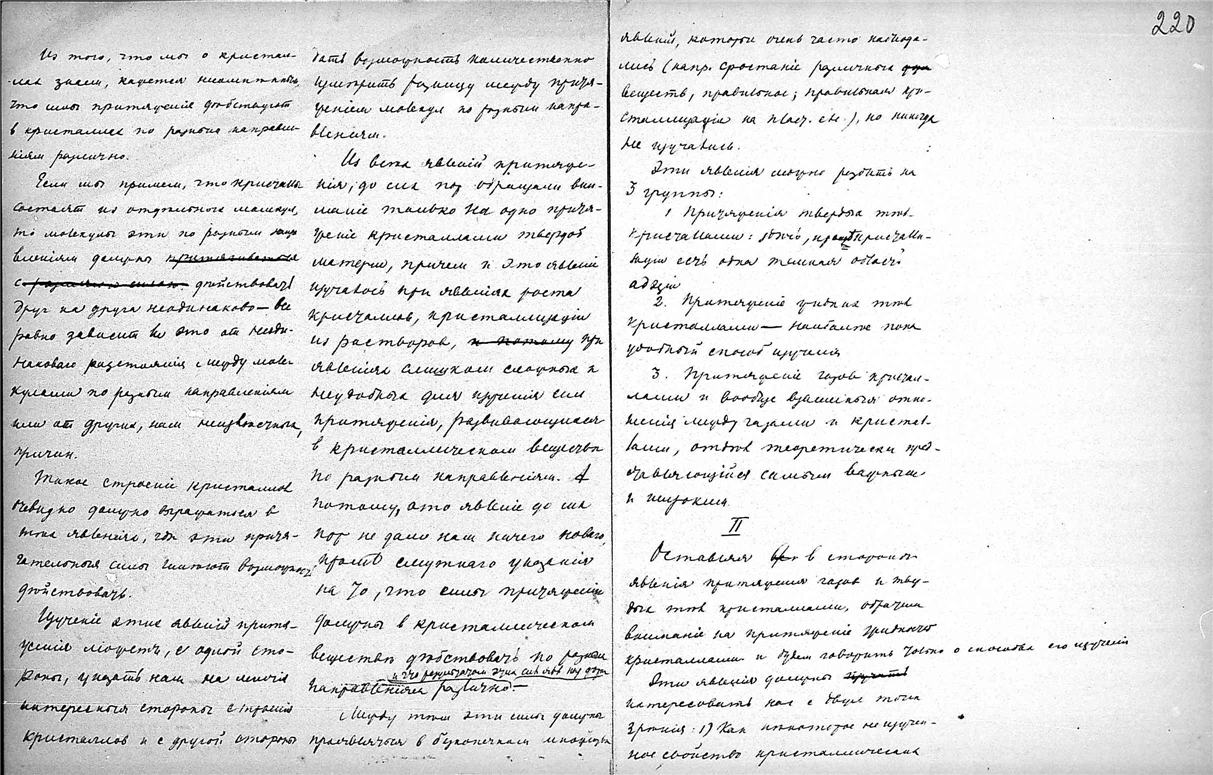 220
Из того, что мы о кристал-
лах знаем, кажется несомненным,
что силы притяженія действуют
в кристаллах по разным направле-
ніям различно.
Если мы примем, что кристаллы
состоят из отдельных молекул,
то молекулы эти по разным напра
влениям должны притягиваться
с разною силою действовать
друг на друга неодинаково — все
равно зависит ли это от неоди-
наковаго разстоянія между моле-
кулами по разным направлениям
или от других, нам неизвестных,
причин.
Такое строеніе кристаллов
очевидно должно выражаться в
тех явленіях, где эти притя-
гательныя силы имеют возможность
действовать.
Изученіе этих явленій притя-
женія может, с одной сто-
роны, указать нам на многія
интересныя стороны строенія
кристаллов и с другой стороны
дать возможность количественно
измерить разницу между притя-
женіем молекул по разным напра-
вленіям.
Из всех явленій притяже-
нія, до сих пор обращали вни-
маніе только на одно притя-
женіе кристаллами твердой
матеріи, причем и это явленіе
изучалось при явленіях роста
кристаллов, кристаллизаціи
из растворов, и потому при
явленіях слишком сложных и
неудобных для изученія сил
притяженія, развивающихся
в кристаллическом веществе
по разным направленіям. А
потому, это явленіе до сих
пор не дало нам ничего новаго,
кроме смутнаго указанія
на то, что силы притяженія
должны в кристаллическом
веществе действовать по разным
и что результатом этих сил
направленіям различно.—
Между тем эти силы должны
проявляться в бесконечном множестве
явлений, которые очень часто наблюда-
лись (напр. сростаніе различных
веществ, правильное; правильная кри-
сталлизація на пласт. сл.), но никогда
не изучались.
Эти явленія можно разбить на
3 группы:
1 Притяженія твердых тел
кристаллами:
есть одна темная область
2. Притяженіе жидких тел
кристаллами — наиболее пока
удобный способ изученія
3. Притяженіе газов кристал-
лами и вообще взаимныя отно-
шенія между газами и кристал-
лами, отдел теоретически пред-
ставляющійся самым важным
и широким.
II
Оставляя в стороне
явленія притяженія газов и твер-
дых тел кристаллами, обратим
вниманіе на притяженіе жидкостей
кристаллами и будем говорить только о способах его изученія
Эти явленія должны изучать
интересовать нас с двух точек
зренія: 1) Как некоторое неизучен-
ное свойство кристаллических